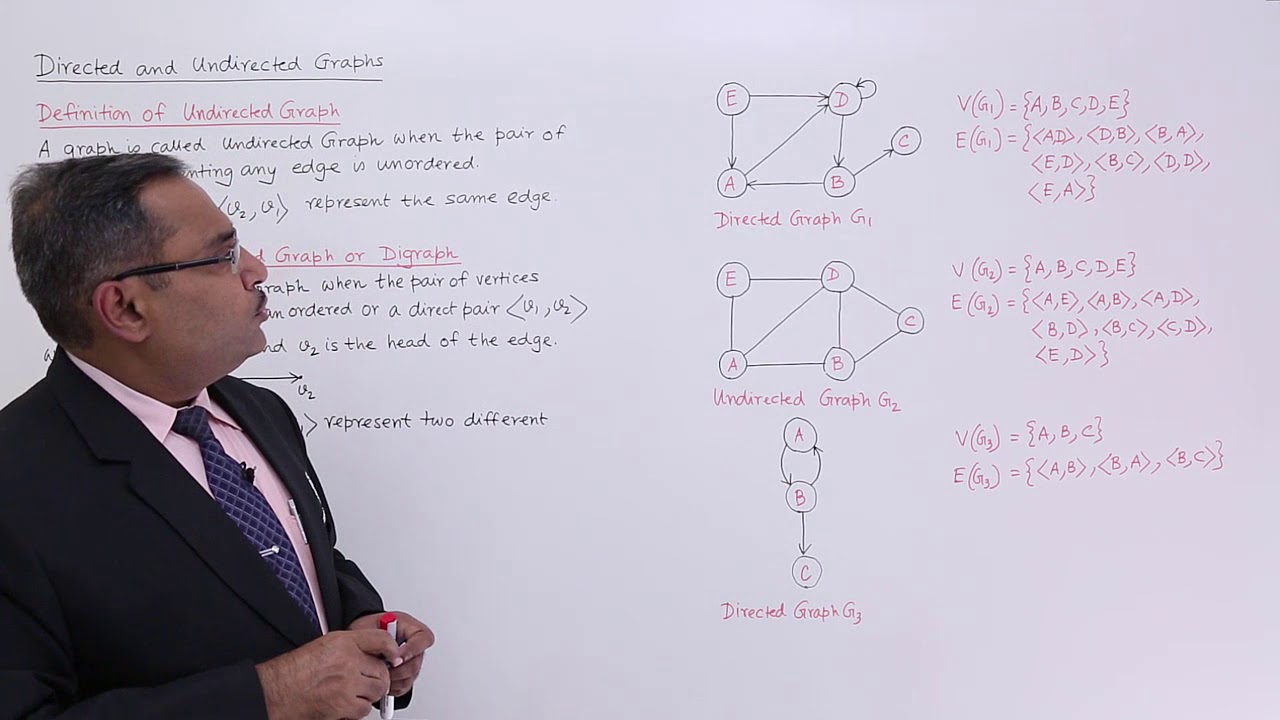 Directed and Undirected Graphs
Definition of Undirected Graph
A graph is called Undirected Graph when the pair of
nting any edge is unordered.
⟨v2, v1⟩ represent the same edge.
d Graph or Digraph
graph when the pair of vertices
an ordered or a direct pair ⟨v1, v2⟩
nd v2 is the head of the edge.
v2
⟩ represent two different
E
D
C
A
B
Directed Graph G1
V(G1) = {A, B, C, D, E}
E(G1) = {⟨AD⟩, ⟨D, B⟩, ⟨B, A⟩,
⟨E, D⟩, ⟨B, C⟩, ⟨D, D⟩,
⟨E, A⟩}
E
D
C
A
B
Undirected Graph G2
V(G2) = {A, B, C, D, E}
E(G2) = {⟨A, E⟩, ⟨A, B⟩, ⟨A, D⟩,
⟨B, D⟩, ⟨B, C⟩, ⟨C, D⟩,
⟨E, D⟩}
A
B
C
Directed Graph G3
V(G3) = {A, B, C}
E(G3) = {⟨A, B⟩, ⟨B, A⟩, ⟨B, C⟩}